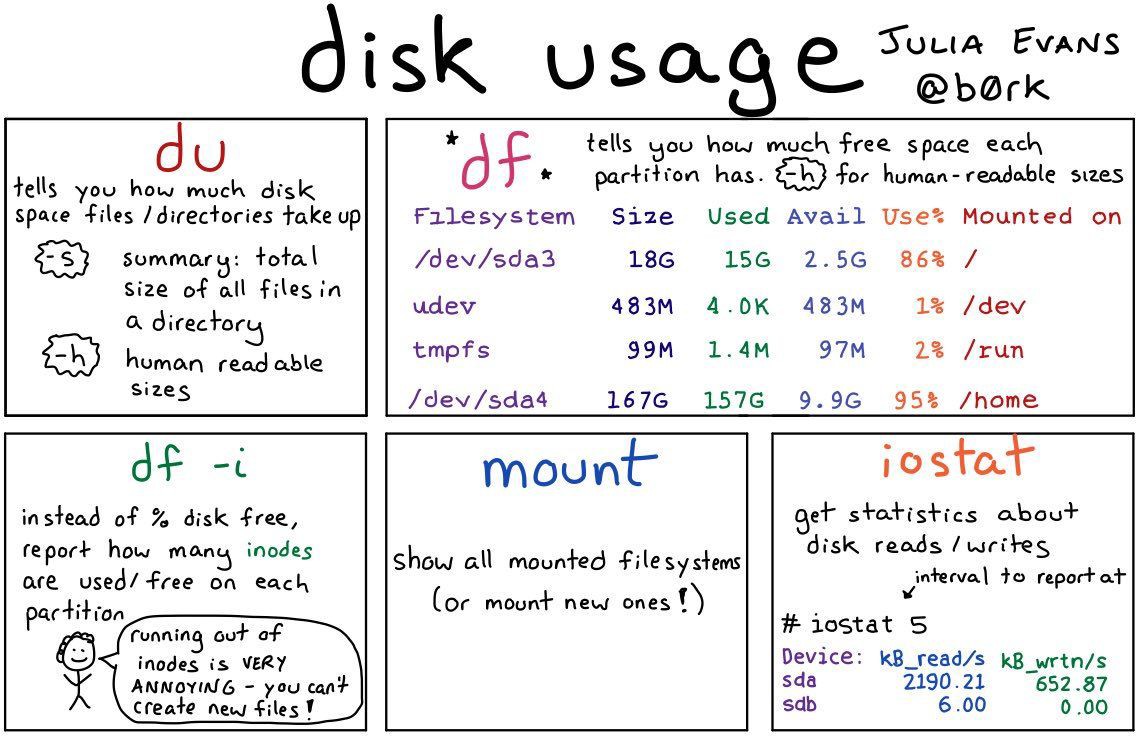 disk usage
JULIA EVANS
@b0rk
du
tells you how much disk
space files/directories take up
-s
summary: total
size of all files in
a directory
-h
human readable
sizes
*df*
tells you how much free space each
partition has. -h for human-readable sizes
Filesystem Size Used Avail Use% Mounted on
/dev/sda3 18G 15G 2.5G 86% /
udev 483M 4.0K 483M 1% /dev
tmpfs 99M 1.4M 97M 2% /run
/dev/sda4 167G 157G 9.9G 95% /home
df -i
instead of % disk free,
report how many inodes
are used/free on each
partition
running out of
inodes is VERY
ANNOYING - you can't
create new files!
mount
show all mounted filesystems
(or mount new ones!)
iostat
get statistics about
disk reads/writes
interval to report at
# iostat 5
Device: kB_read/s kB_wrtn/s
sda 2190.21 652.87
sdb 6.00 0.00